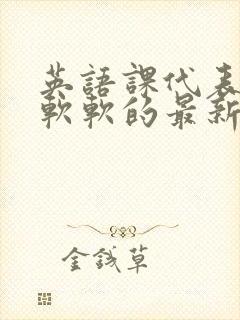 英語課代表
軟軟的最新
金錢草